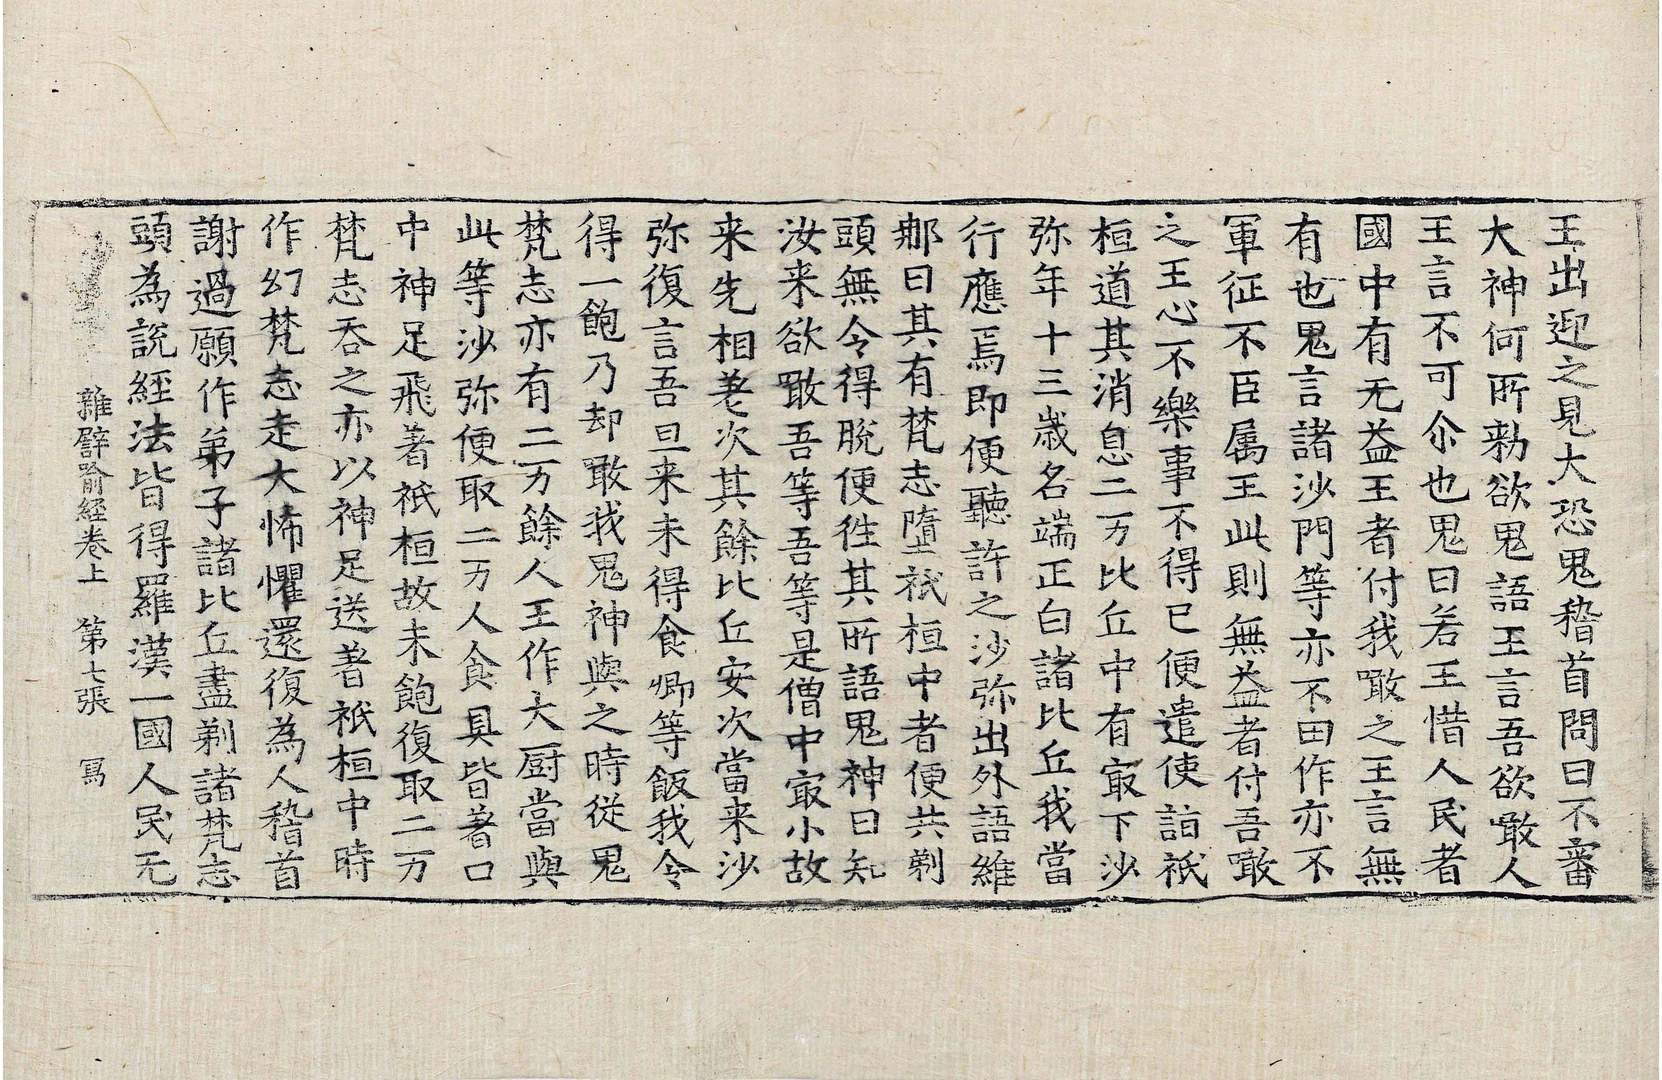 王出迎之見大恐鬼稽首問曰不審
大神何所勑欲鬼語王言吾欲噉人
王言不可尒也鬼曰若王惜人民者
國中有无益王者付我噉之王言無
有也鬼言諸沙門等亦不田作亦不
軍征不臣属王此則無益者付吾噉
之王心不樂事不得已便遣使詣祇
桓道其消息二万比丘中有㝡下沙
弥年十三歲名端正白諸比丘我當
行應焉即便聽許之沙弥出外語維
那曰其有梵志墮祇桓中者便共剃
頭無令得脫便徃其所語鬼神曰知
汝来欲噉吾等吾等是僧中㝡小故
来先相差次其餘比丘安次當来沙
弥復言吾旦来未得食卿等飯我令
得一飽乃却噉我鬼神與之時従鬼
梵志亦有二万餘人王作大厨當與
此等沙弥便取二万人食具皆著口
中神足飛著祇桓故未飽復取二万
梵志吞之亦以神足送著祇桓中時
作幻梵志走大怖懼還復為人稽首
謝過願作弟子諸比丘盡剃諸梵志
頭為說經法皆得羅漢一國人民无
雜譬喻經卷上　第七張　冩